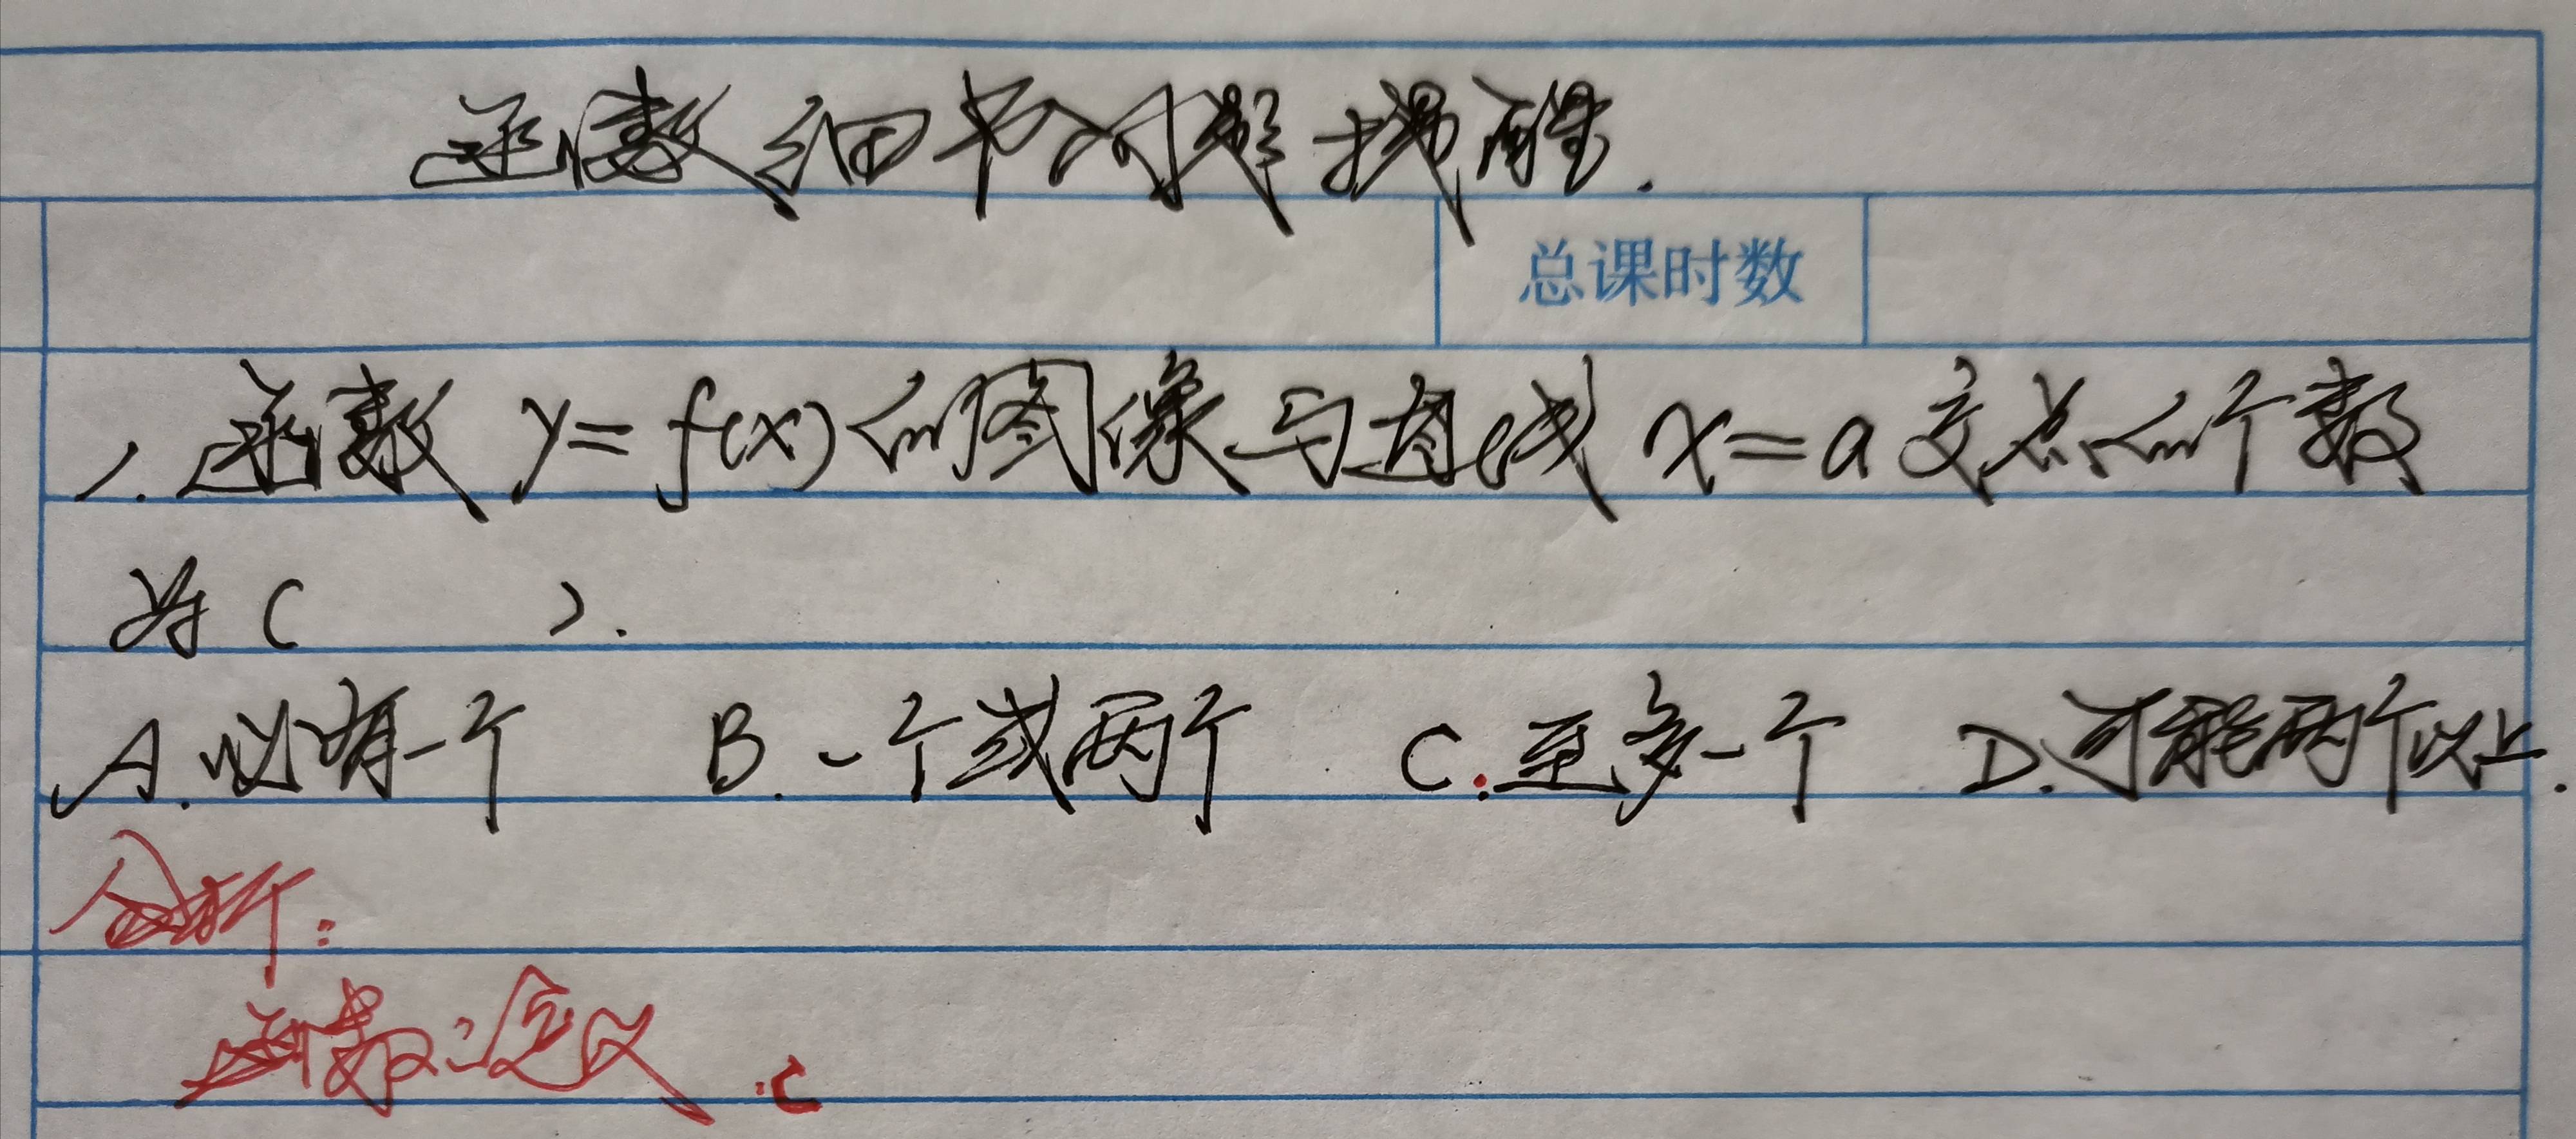 函数细节问题提醒.
总课时数
1. 函数 y=f(x)的图像与直线 x=a 交点的个数
为( ).
A.必有一个 B.一个或两个 C.至多一个 D.可能两个以上.
分析:
函数定义 .C